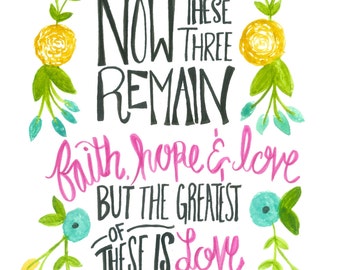 NOW THESE
THREE
REMAIN
faith, hope & love
BUT THE GREATEST
OF
THESE IS Love